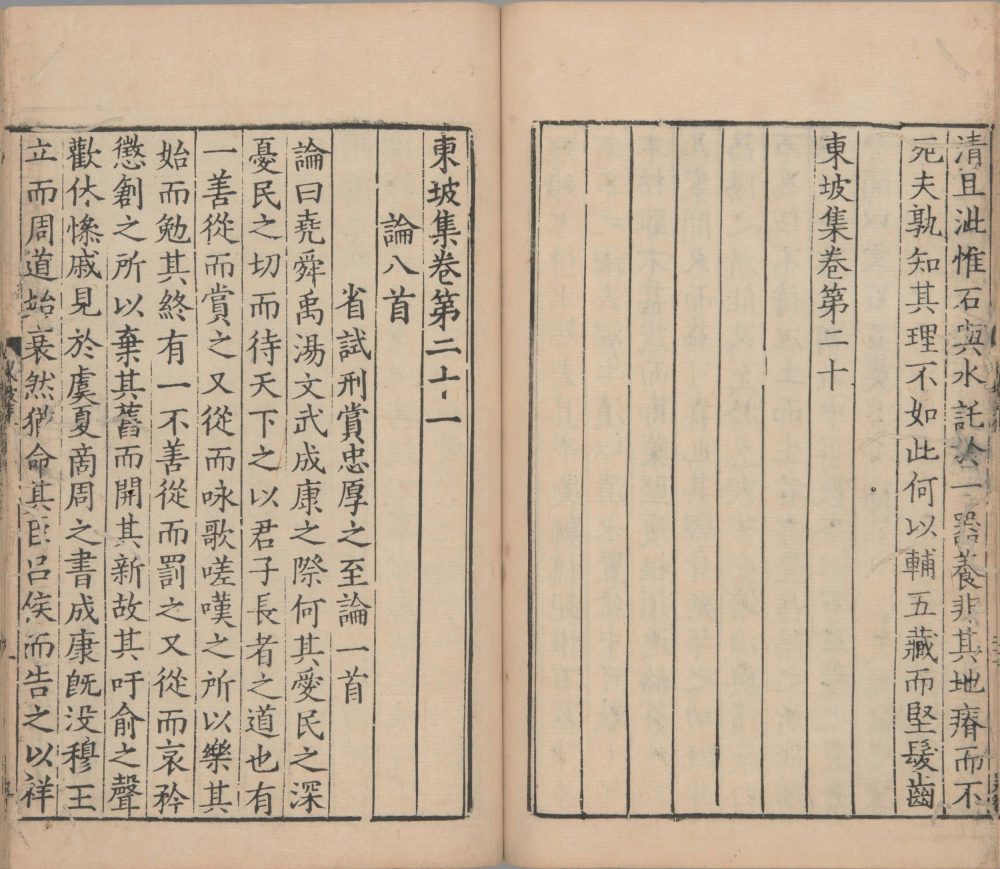 清且泚惟石與水託於一器養非其地瘠而不
死夫孰知其理不如此何以輔五藏而堅髮齒
東坡集卷第二十
東坡集卷第二十一
論八首
省試刑賞忠厚之至論一首
論曰堯舜禹湯文武成康之際何其愛民之深
憂民之切而待天下之以君子長者之道也有
一善從而賞之又從而咏歌嗟嘆之所以樂其
始而勉其終有一不善從而罰之又從而哀矜
懲創之所以棄其舊而開其新故其吁俞之聲
歡休慘戚見於虞夏商周之書成康旣没穆王
立而周道始衰然猶命其臣吕侯而告之以祥